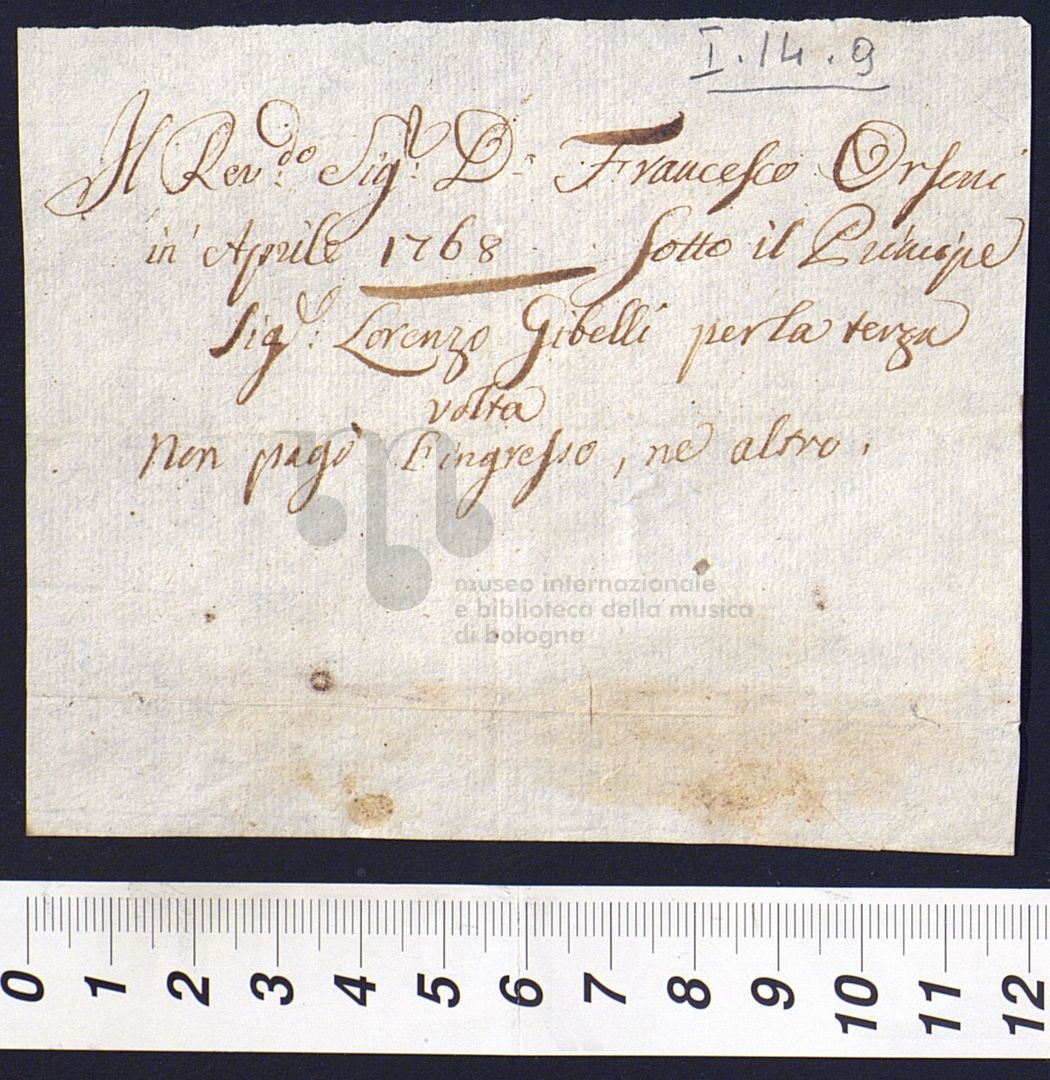 I.14.9
Il Rev.do Sig.r D. Francesco Orsoni
in Aprile 1768 Sotto il Principe
Sig.r: Lorenzo Gibelli per la terza
volta
Non pagò l'ingresso, ne altro.
museo internazionale
e biblioteca della musica
di bologna
0 1 2 3 4 5 6 7 8 9 10 11 12